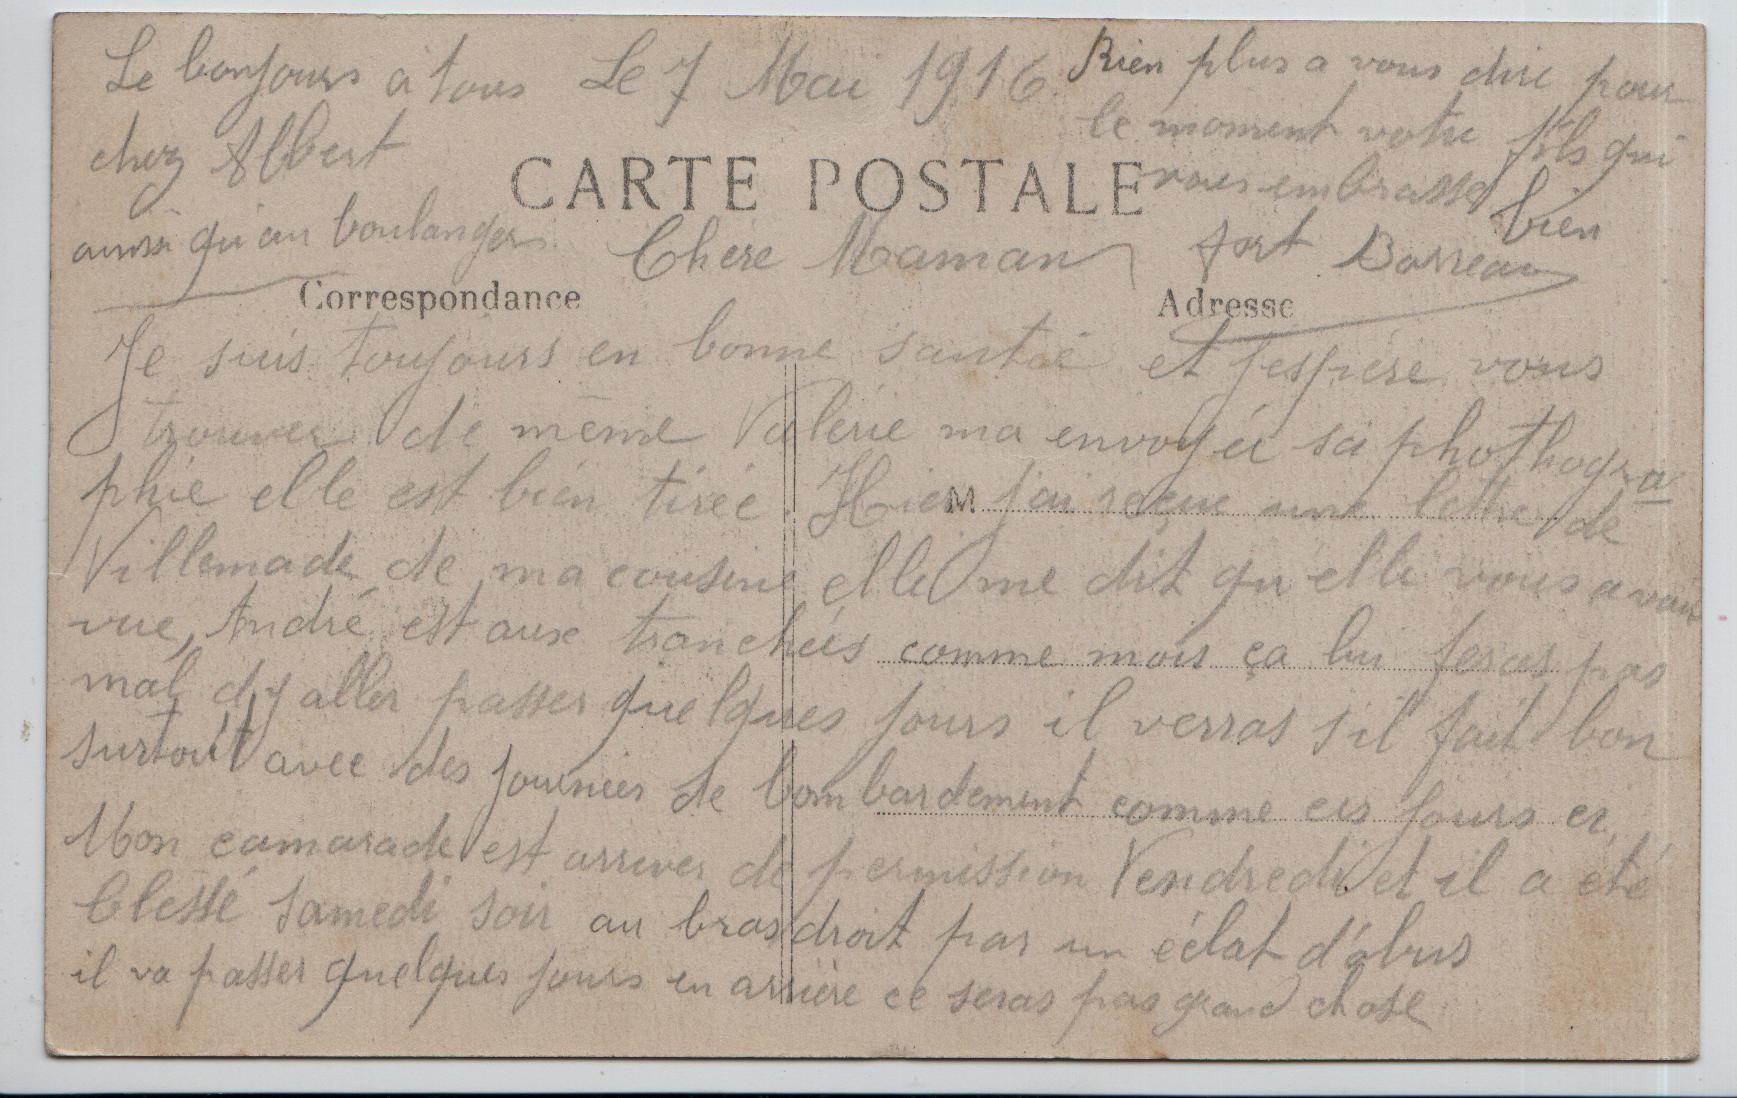 Le 7 Mai 1916
CARTE POSTALE
Chere Maman
Correspondance
Adresse
M
Je suis toujours en bonne santée et j'espère vous
trouver de même Valérie ma envoyée sa phothogra
phie elle est bien tirée. Hier j'ai reçue une lettre de
Villemade de ma cousine elle me dit qu'elle vous avais
vue, André est aux tranchées comme mois ça lui feras pas
mal d'y aller passer quelques jours il verras s'il fait bon
surtout avec des journées de bombardement comme ces jours ci.
Mon camarade est arriver de permission Vendredi et il a été
blessé samedi soir au bras droit par un éclat d'obus
il va passer quelques jours en arrière ce seras pas grand chose
Rien plus a vous dire pour
le moment votre fils qui
vous embrasse bien
fort Barreau
Le bonjours à tous
chez Albert
ainsi qu'au boulanger